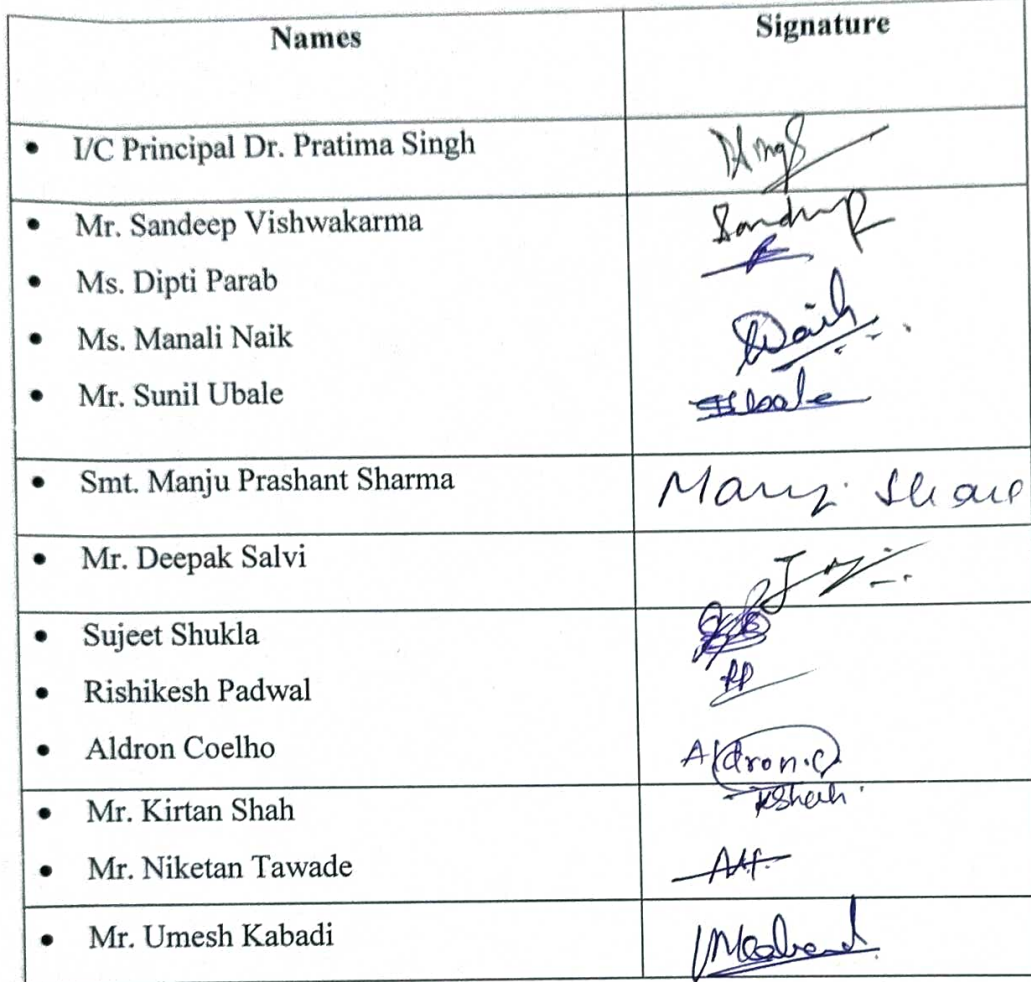 Names Signature
• I/C Principal Dr. Pratima Singh
• Mr. Sandeep Vishwakarma
• Ms. Dipti Parab
• Ms. Manali Naik Naik
• Mr. Sunil Ubale
• Smt. Manju Prashant Sharma
• Mr. Deepak Salvi
• Sujeet Shukla
• Rishikesh Padwal RP
• Aldron Coelho Aldron.C
• Mr. Kirtan Shah KShah
• Mr. Niketan Tawade
• Mr. Umesh Kabadi